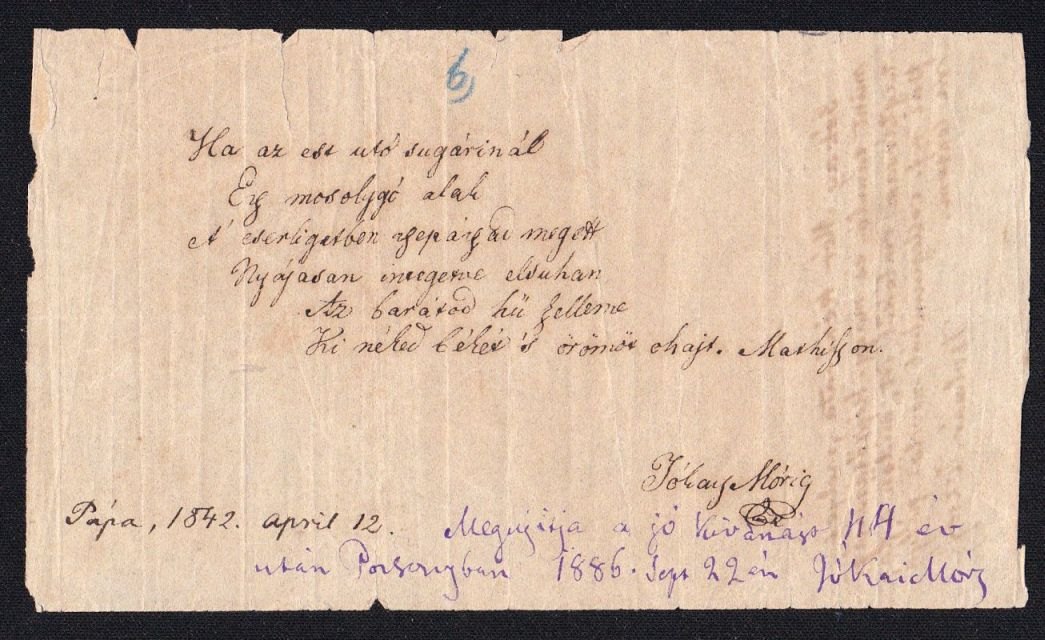 6)
Ha az est utó sugárinál
Egy mosolygó alak
A' cserligetben megett
Nyájasan integetve elsuhan
Az barátod hű szelleme
Ki néked békét 's örömöt ohajt. Mathisson.
Jókay Móricz
Pápa, 1842. april 12.
Megujitja a jó kivánást 44 év
után Pozsonyban 1886. Sept 22 én Jókai Mór